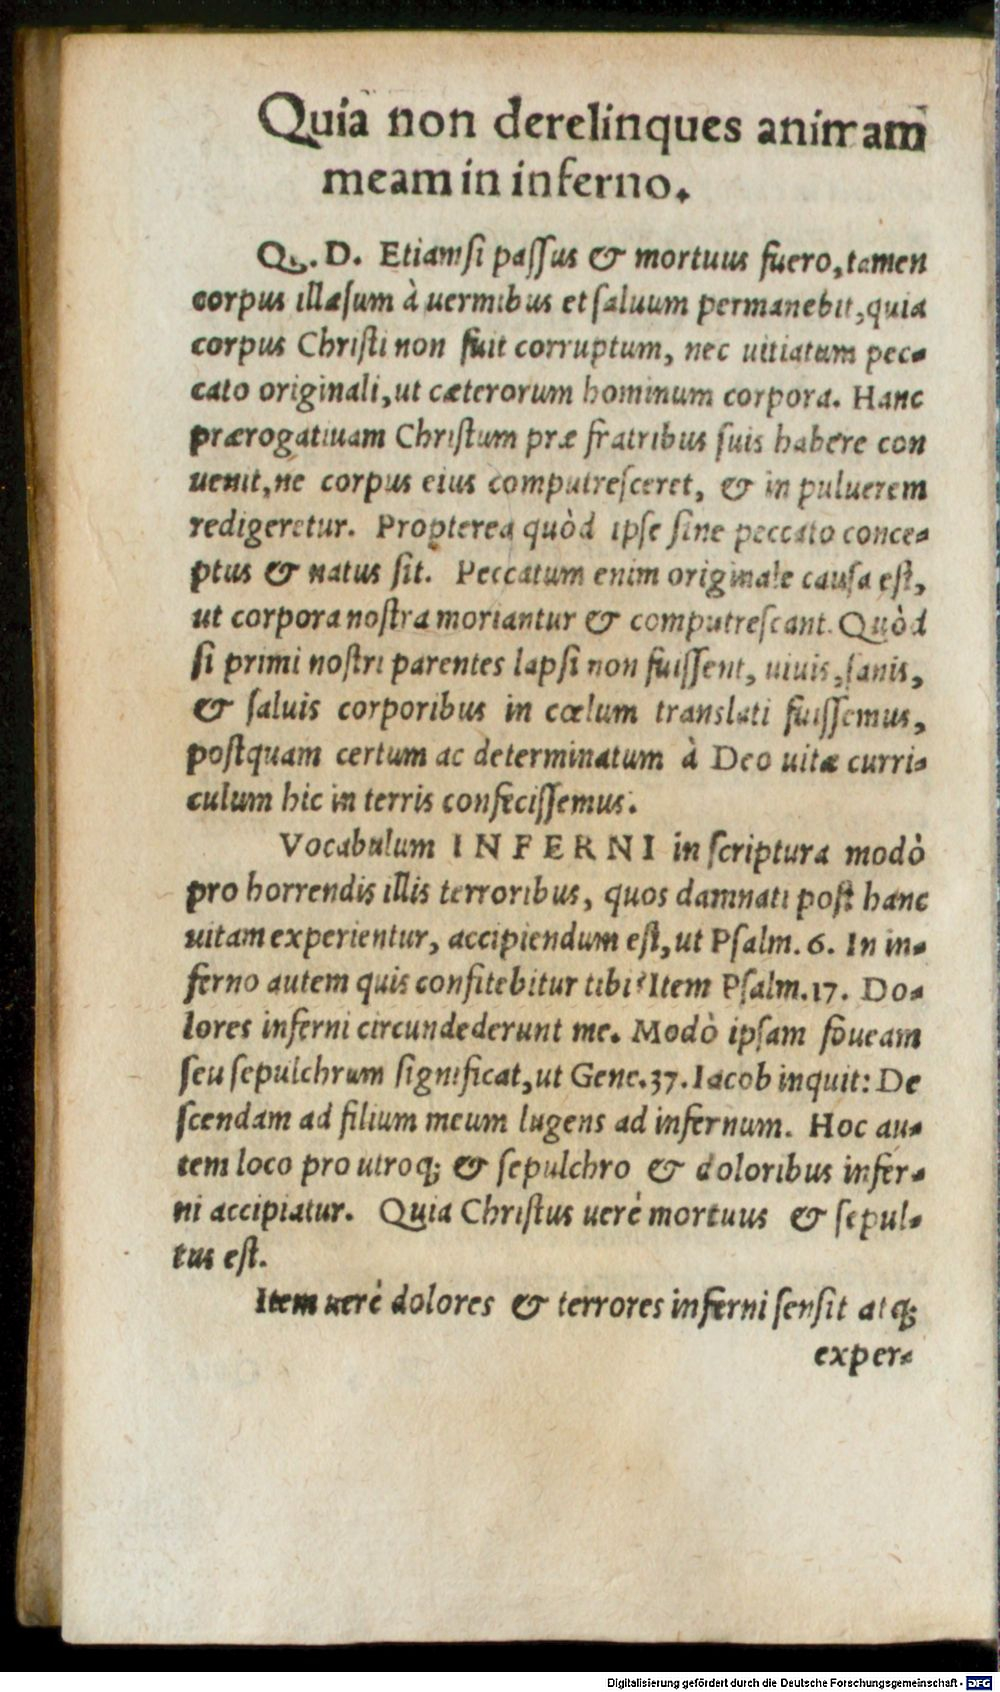 Quia non derelinques animam
meam in inferno.
Q. D. Etiamsi passus & mortuus fuero, tamen
corpus illæsum à uermibus et saluum permanebit, quia
corpus Christi non fuit corruptum, nec uitiatum pec-
cato originali, ut cæterorum hominum corpora. Hanc
prærogatiuam Christum præ fratribus suis habere con
uenit, ne corpus eius computresceret, & in puluerem
redigeretur. Propterea quòd ipse sine peccato conce-
ptus & natus sit. Peccatum enim originale causa est,
ut corpora nostra moriantur & computrescant. Quòd
si primi nostri parentes lapsi non fuissent, uiuis, sanis,
& saluis corporibus in cœlum translati fuissemus,
postquam certum ac determinatum à Deo uitæ curri-
culum hic in terris confecissemus.
Vocabulum INFERNI in scriptura modò
pro horrendis illis terroribus, quos damnati post hanc
uitam experientur, accipiendum est, ut Psalm. 6. In in-
ferno autem quis confitebitur tibi? Item Psalm. 17. Do-
lores inferni circundederunt me. Modò ipsam foueam
seu sepulchrum significat, ut Gene. 37. Iacob inquit: De
scendam ad filium meum lugens ad infernum. Hoc au-
tem loco pro utroq; & sepulchro & doloribus infer-
ni accipiatur. Quia Christus uerè mortuus & sepul-
tus est.
Item uerè dolores & terrores inferni sensit atq;
exper-
Digitalisierung gefördert durch die Deutsche Forschungsgemeinschaft - DFG